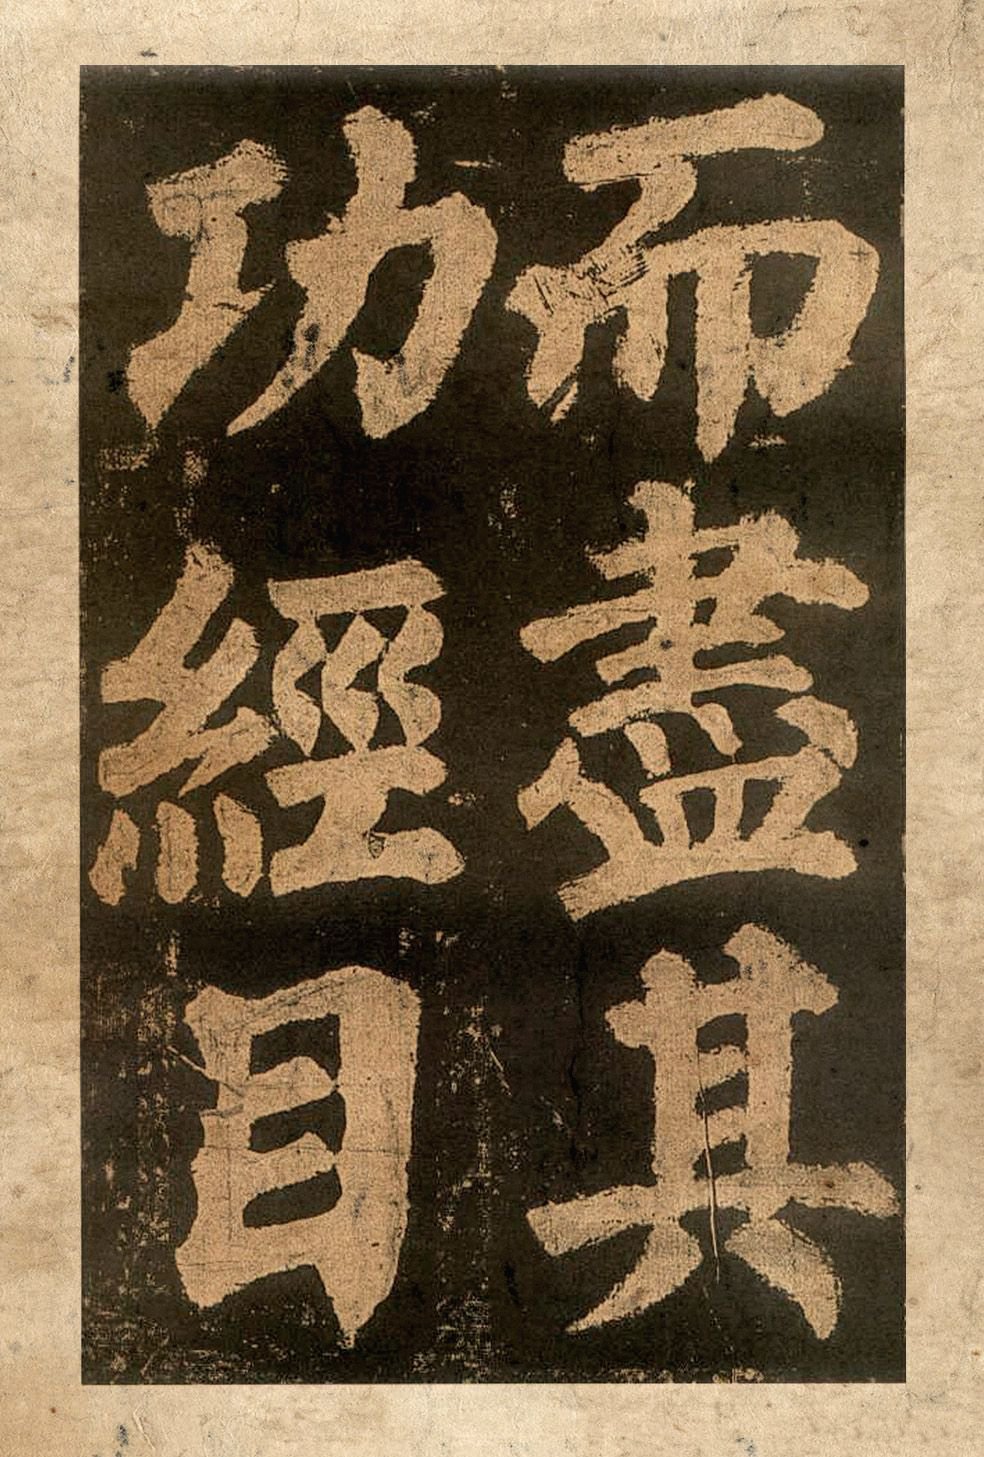 而盡其
功經目